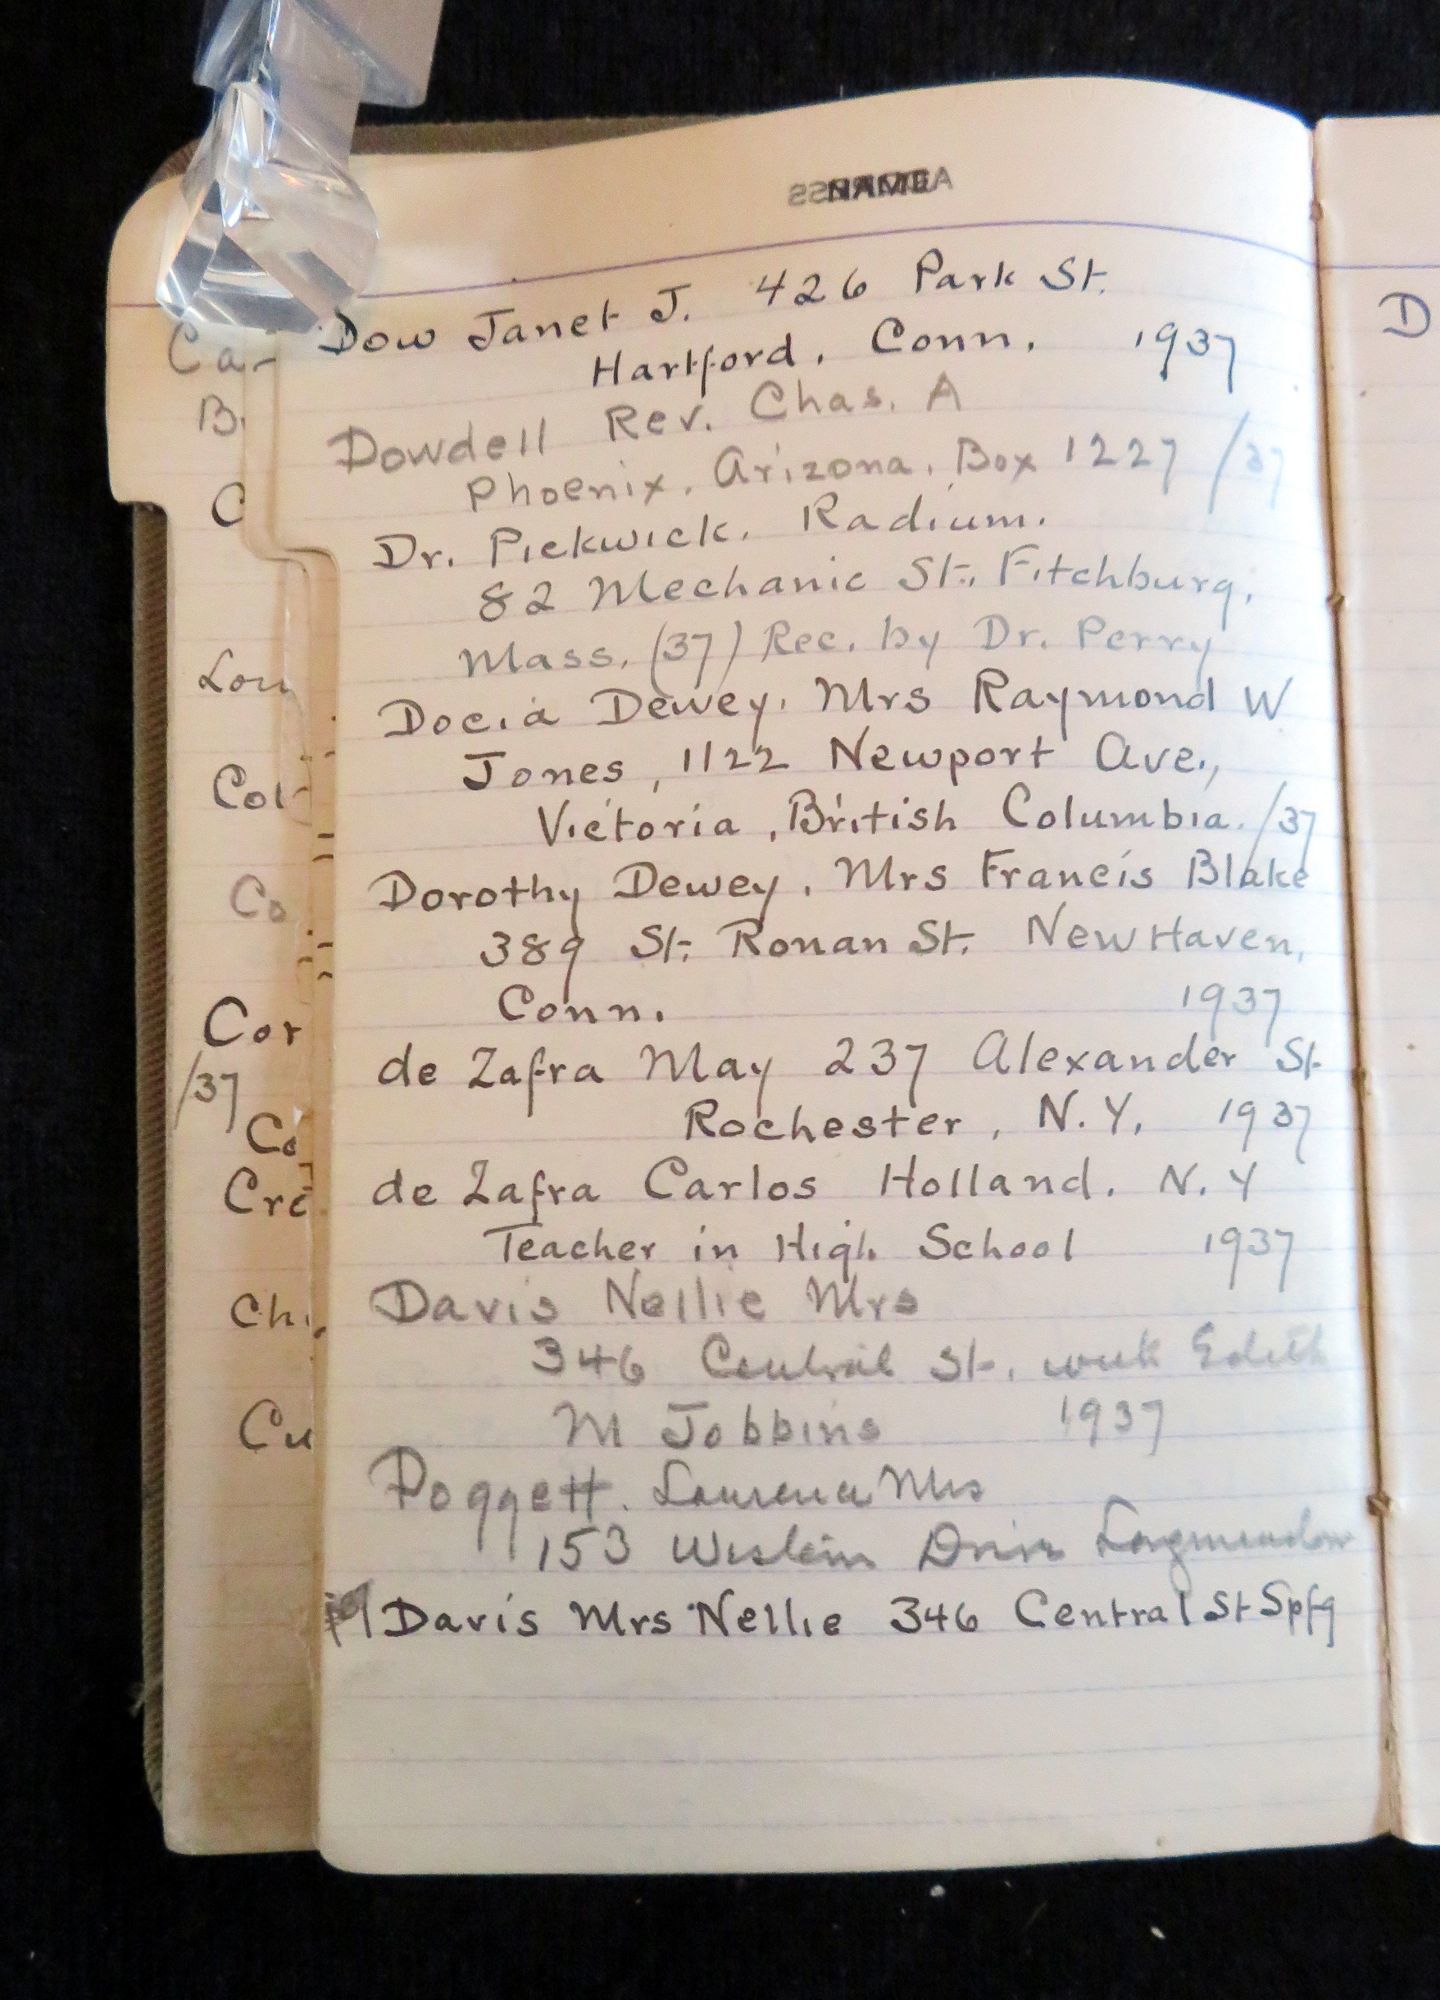 NAME
Dow Janet J. 426 Park St.
Hartford, Conn. 1937
Dowdell Rev. Chas. A
Phoenix, Arizona, Box 1227 /37
Dr. Pickwick. Radium.
82 Mechanic St., Fitchburg,
Mass. (37) Rec. by Dr. Perry
Docia Dewey, Mrs Raymond W
Jones, 1122 Newport Ave.,
Victoria, British Columbia. /37
Dorothy Dewey, Mrs Francis Blake
389 St. Ronan St. New Haven,
Conn. 1937
de Zafra May 237 Alexander St
Rochester, N.Y. 1937
de Zafra Carlos Holland. N.Y
Teacher in High School 1937
Davis Nellie Mrs
346 Central St. with Edith
M Jobbins 1937
Doggett. Laurence Mrs
153 Western Drive Longmeadow
Davis Mrs Nellie 346 Central St Spfg
Ca
B.
C
Lou
Col
Co
Cor
/37
Co
Cre
Chi
Cu
D